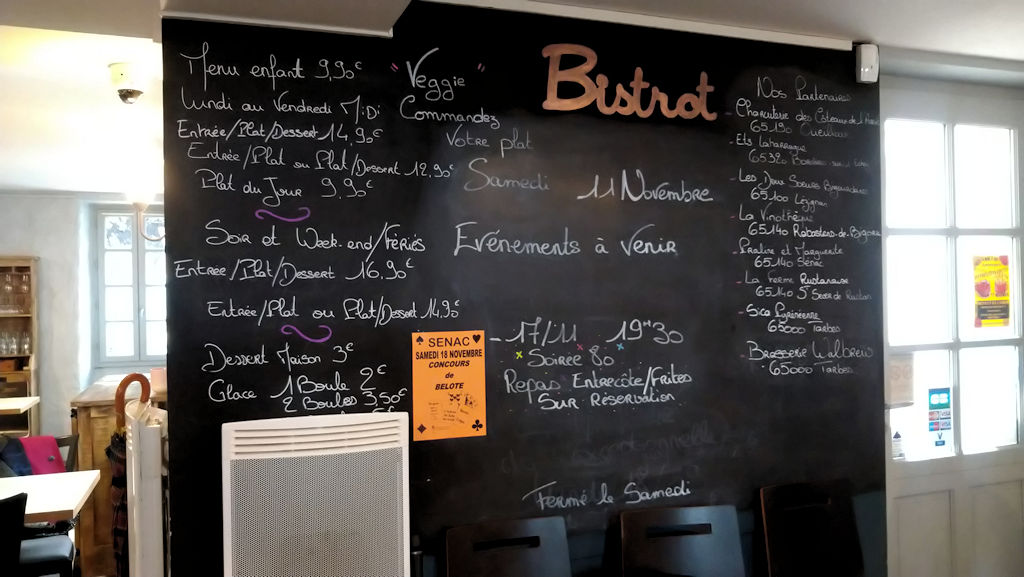 Menu enfant 9,90€
Lundi au Vendredi Midi
Entrée/Plat/Dessert 14,90€
Entrée/Plat ou Plat/Dessert 12,90€
Plat du Jour 9,90€
Soir et Week-end/Fériés
Entrée/Plat/Dessert 16,90€
Entrée/Plat ou Plat/Dessert 14,90€
Dessert Maison 3€
Glace 1 Boule 2€
2 Boules 3,50€
"Veggie"
Commandez
Votre plat
Samedi 11 Novembre
Evénements à venir
- 17/11 19H30
Soirée 80
Repas Entrecôte/Frites
Sur Réservation
Fermé le Samedi
SENAC
SAMEDI 18 NOVEMBRE
CONCOURS
de
BELOTE
Bistrot
Nos Partenaires
- Charcuterie des Côteaux de l'
65190
- Ets
65320
- Les Deux Soeurs
65100
- La Vinothèque
65140 Rabastens-de-Bigorre
- Praline et Marguerite
65140 Senac
- La Ferme Rustanaise
65140 St Sever de Rustan
- Sica Pyrénéenne
65000 Tarbes
- Brasserie
65000 Tarbes